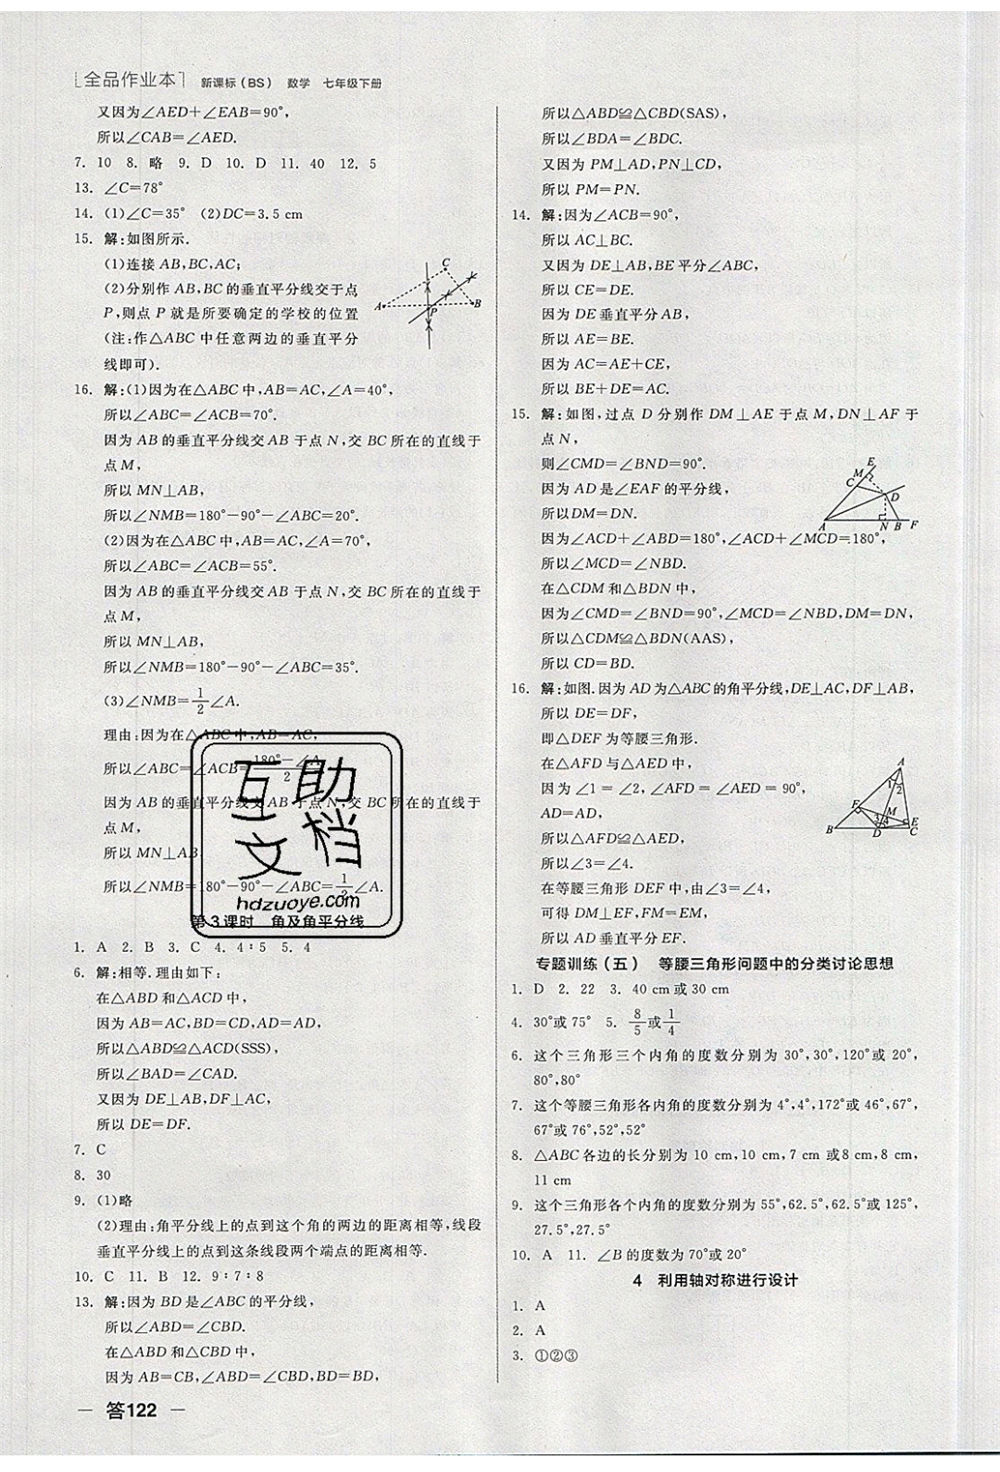 全品作业本 新课标(BS) 数学 七年级下册
又因为∠AED+∠EAB=90°,
所以∠CAB=∠AED.
7. 10 8. 略 9. D 10. D 11. 40 12. 5
13. ∠C=78°
14. (1)∠C=35° (2)DC=3.5 cm
15. 解:如图所示.
(1)连接 AB,BC,AC;
(2)分别作 AB,BC的垂直平分线交于点
P,则点 P 就是所要确定的学校的位置
(注:作△ABC中任意两边的垂直平分
线即可).
A
B
C
P
16. 解:(1)因为在△ABC中,AB=AC,∠A=40°,
所以∠ABC=∠ACB=70°.
因为 AB的垂直平分线交 AB 于点 N,交 BC所在的直线于
点M,
所以 MN⊥AB,
所以∠NMB=180°-90°-∠ABC=20°.
(2)因为在△ABC中,AB=AC,∠A=70°,
所以∠ABC=∠ACB=55°.
因为 AB的垂直平分线交AB 于点 N,交 BC 所在的直线于
点M,
所以 MN⊥AB,
所以∠NMB=180°-90°-∠ABC=35°.
(3)∠NMB=1/2∠A.
理由:因为在△ABC中,AB=AC,
所以∠ABC=∠ACB=(180°-∠A)/2
因为 AB 的垂直平分线交 AB于点 N,交 BC所在的直线于
点M,
所以 MN⊥AB
所以∠NMB=180°-90°-∠ABC=1/2∠A.
互助
文档
hdzuoye.com
第3课时 角及角平分线
1. A 2. B 3. C 4. 4∶5 5. 4
6. 解:相等.理由如下:
在△ABD和△ACD中,
因为 AB=AC,BD=CD,AD=AD,
所以△ABD≌△ACD(SSS),
所以∠BAD=∠CAD.
又因为 DE⊥AB,DF⊥AC,
所以 DE=DF.
7. C
8. 30
9. (1)略
(2)理由:角平分线上的点到这个角的两边的距离相等,线段
垂直平分线上的点到这条线段两个端点的距离相等.
10. C 11. B 12. 9∶7∶8
13. 解:因为 BD是∠ABC的平分线,
所以∠ABD=∠CBD.
在△ABD 和△CBD中,
因为 AB=CB,∠ABD=∠CBD,BD=BD,
答122
所以△ABD≌△CBD(SAS),
所以∠BDA=∠BDC.
又因为 PM⊥AD,PN⊥CD,
所以 PM=PN.
14. 解:因为∠ACB=90°,
所以 AC⊥BC.
又因为 DE⊥AB,BE平分∠ABC,
所以 CE=DE.
因为 DE 垂直平分AB,
所以 AE=BE.
因为 AC=AE+CE,
所以 BE+DE=AC.
15. 解:如图,过点 D 分别作 DM⊥AE 于点 M,DN⊥AF 于
点 N,
则∠CMD=∠BND=90°.
因为 AD是∠EAF的平分线,
所以DM=DN.
因为∠ACD+∠ABD=180°,∠ACD+∠MCD=180°,
所以∠MCD=∠NBD.
在△CDM和△BDN中,
因为∠CMD=∠BND=90°,∠MCD=∠NBD,DM=DN,
所以△CDM≌△BDN(AAS),
所以 CD=BD.
A
C
M
E
D
N
B
F
16. 解:如图.因为 AD为△ABC的角平分线,DE⊥AC,DF⊥AB,
所以 DE=DF,
即△DEF 为等腰三角形.
在△AFD 与△AED中,
因为∠1=∠2,∠AFD=∠AED=90°,
AD=AD,
所以△AFD≌△AED,
所以∠3=∠4.
在等腰三角形 DEF中,由∠3=∠4,
可得 DM⊥EF,FM=EM,
所以 AD垂直平分EF.
A
1
2
F
3
4
M
E
B
D
C
专题训练(五) 等腰三角形问题中的分类讨论思想
1. D 2. 22 3. 40 cm或30 cm
4. 30°或75° 5. 8/5或1/4
6. 这个三角形三个内角的度数分别为 30°,30°,120°或 20°,
80°,80°
7. 这个等腰三角形各内角的度数分别为 4°,4°,172°或 46°,67°,
67°或 76°,52°,52°
8. △ABC各边的长分别为10 cm,10 cm,7 cm 或8 cm,8 cm,
11 cm
9. 这个三角形各个内角的度数分别为55°,62.5°,62.5°或125°,
27.5°,27.5°
10. A 11. ∠B的度数为70°或20°
4 利用轴对称进行设计
1. A
2. A
3. ①②③